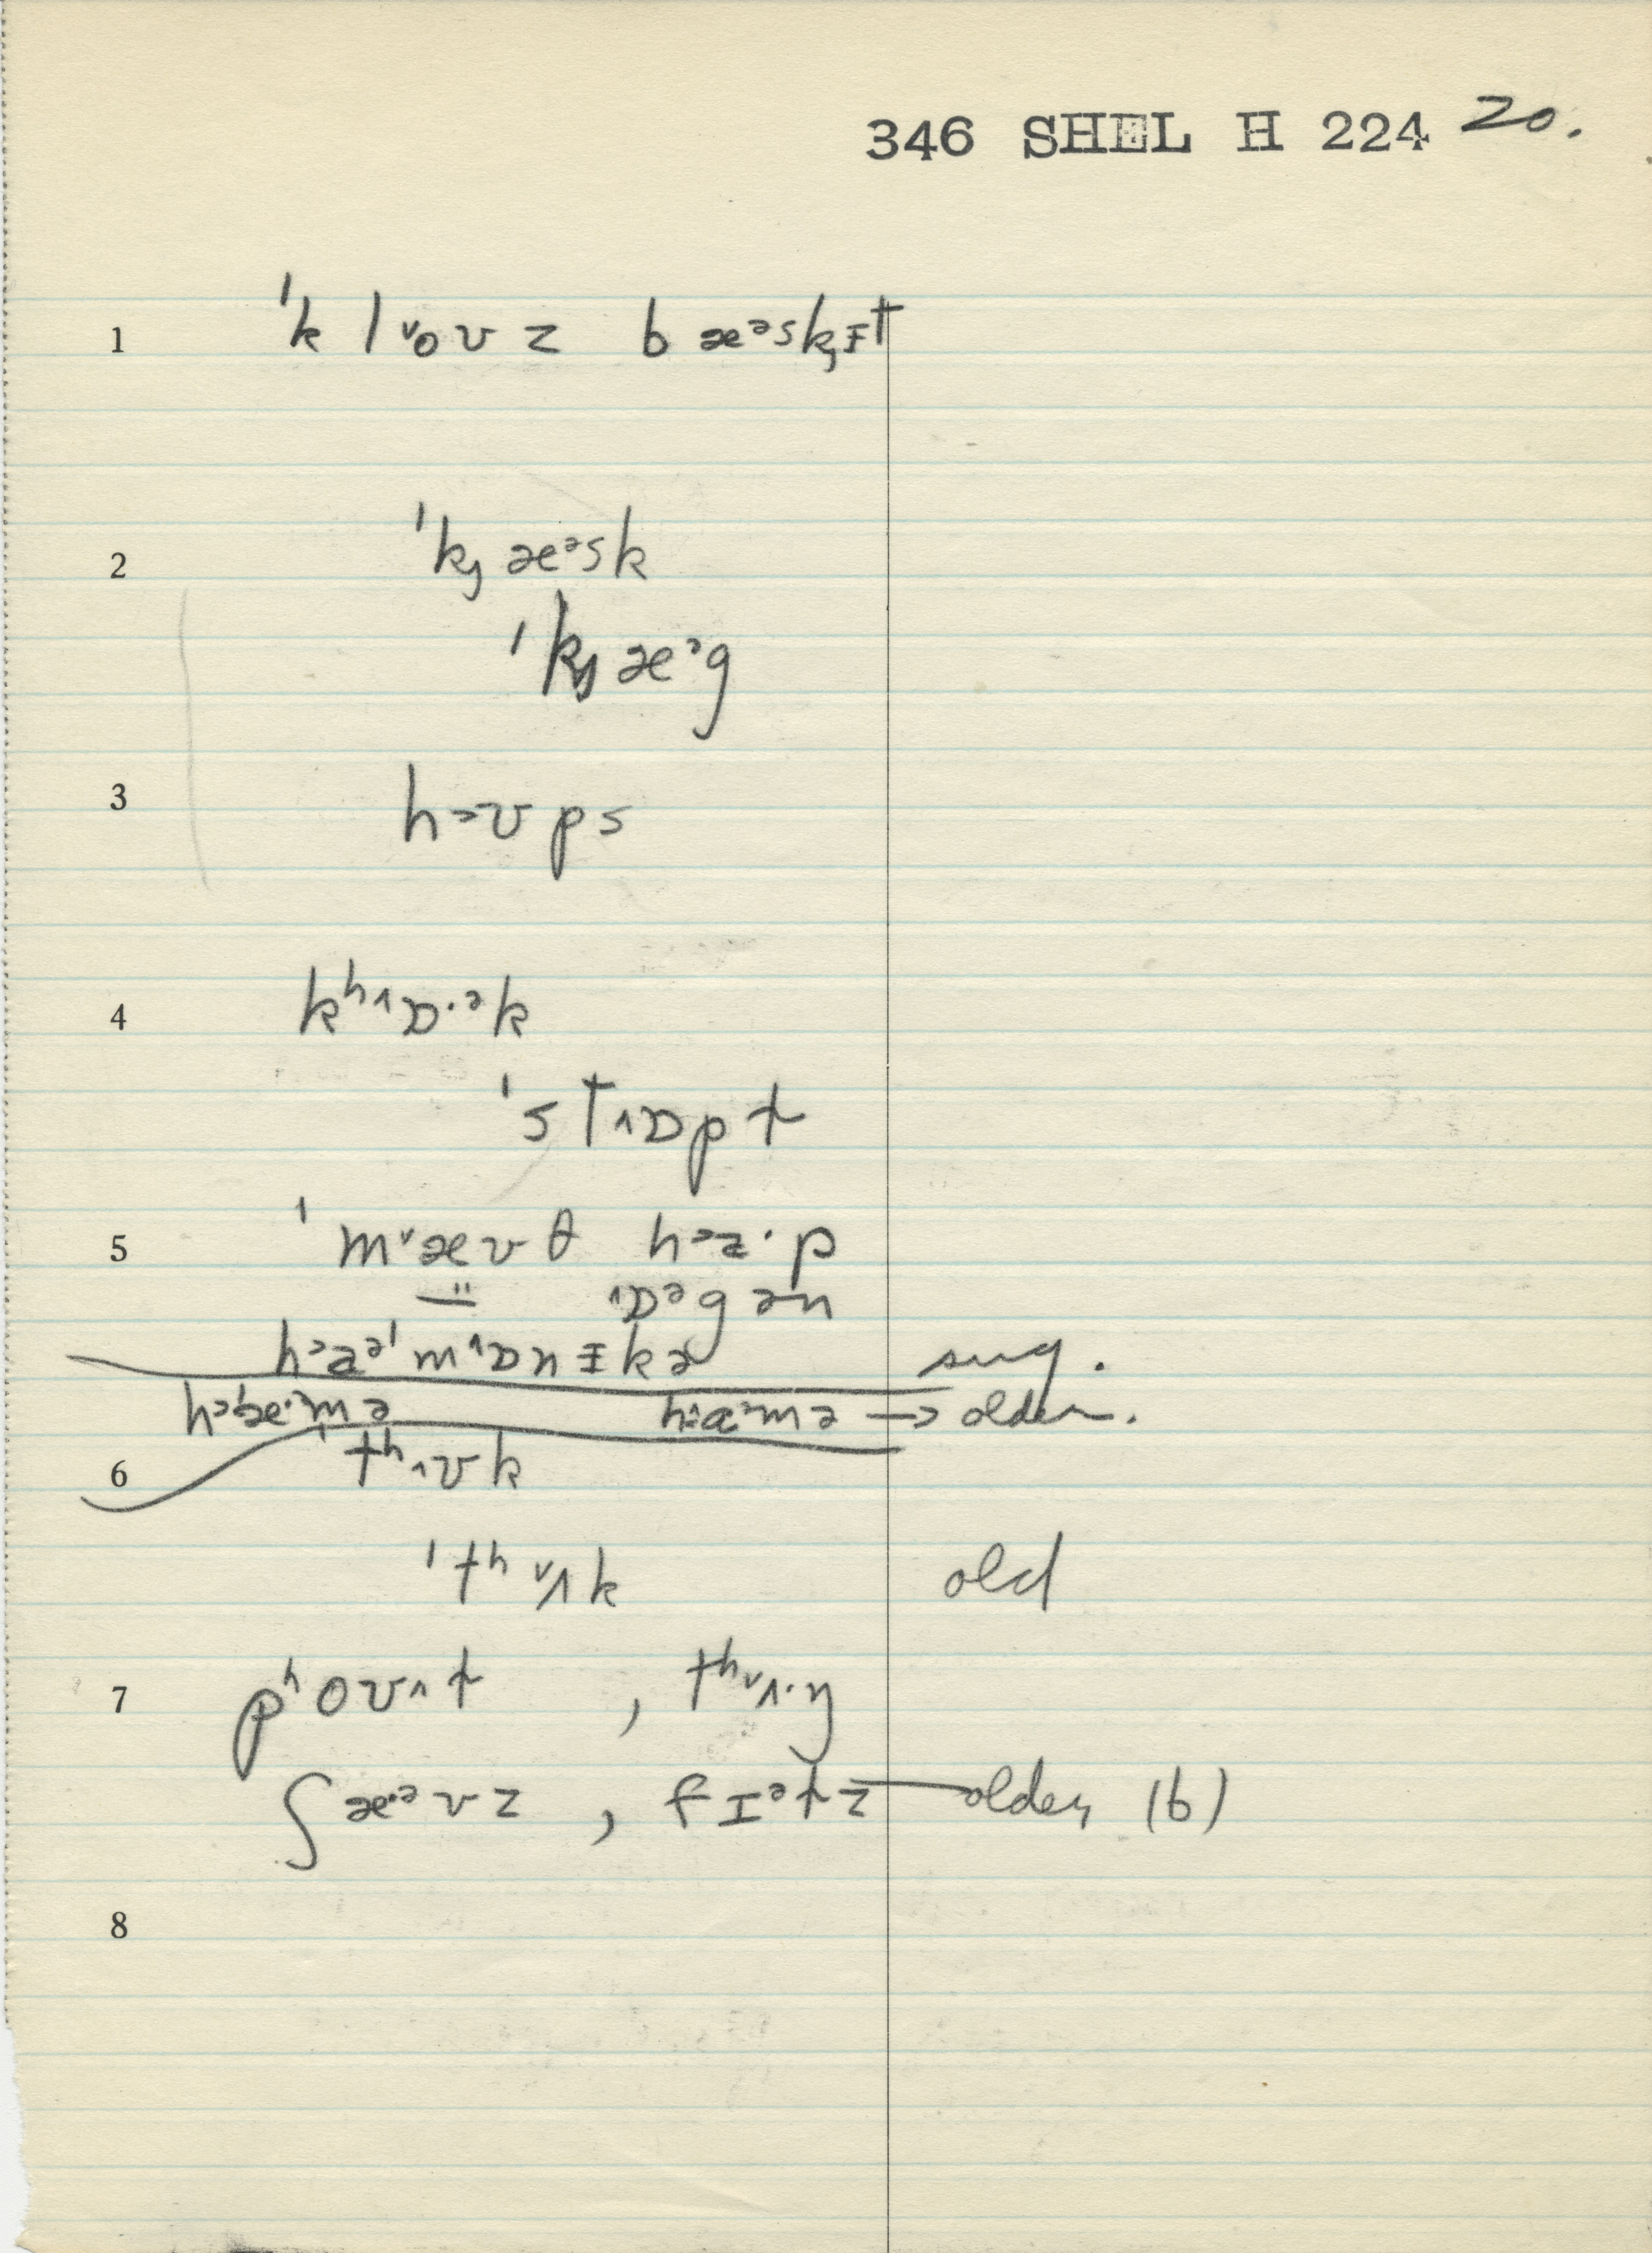 346 SHEL H 224 20.
1 ˈk l ˅o ʊ z b æᵊskɟɪt
2 ˈkɟ æᵊsk
ˈkɟ æᵊg
3 hɔʊps
4 kʰ˄ɒ·ᵊk
ˈst˄ɒpt
5 ˈm˅æʊθ hᵊa·p
˄ɒᵊgən
sug.
hᵊa·ᵊmə → older.
6 tʰ˄ʊk
ˈtʰ˅ʌk old
7 pʰoʊ˄t , tʰ˅ʌ·ŋ
ʃæ·ᵊvz , fɪᵊtz — older (b)
8